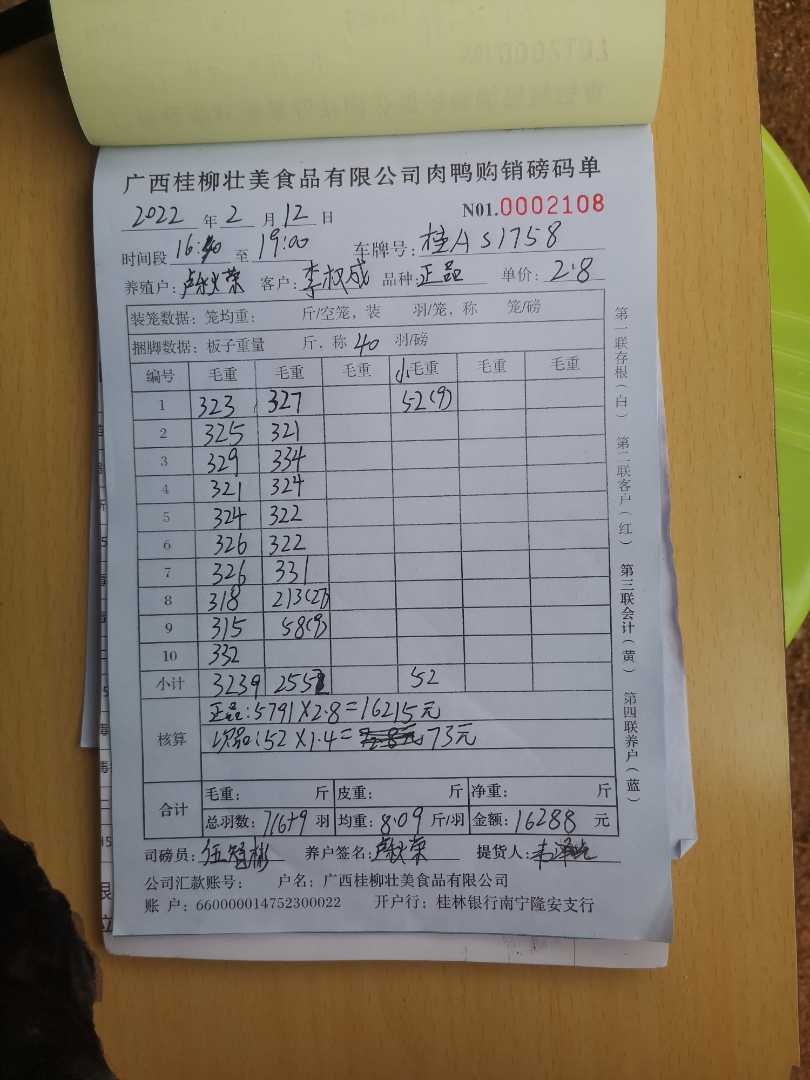 广西桂柳壮美食品有限公司肉鸭购销磅码单
2022 年 2 月 12 日 N01.0002108
时间段 16:40 至 19:00 车牌号: 桂A S1758
养殖户: 卢秋荣 客户: 李权威 品种: 正品 单价: 2.8
装笼数据: 笼均重: 斤/空笼, 装 羽/笼, 称 笼/磅
捆脚数据: 板子重量 斤, 称 40 羽/磅
编号 毛重 毛重 毛重 小毛重 毛重 毛重
1 323 327 52(9)
2 325 321
3 329 334
4 321 324
5 324 322
6 326 322
7 326 331
8 318 213(27)
9 315 58(9)
10 332
小计 3239 2552 52
核算 正品:5791×2.8=16215元
次品:52×1.4= 73元
合计 毛重: 斤 皮重: 斤 净重: 斤
总羽数: 716+9 羽 均重: 8.09 斤/羽 金额: 16288 元
司磅员: 伍智彬 养户签名: 卢秋荣 提货人:
公司汇款账号: 户名: 广西桂柳壮美食品有限公司
账 户: 660000014752300022 开户行: 桂林银行南宁隆安支行
第一联存根(白) 第二联客户(红) 第三联会计(黄) 第四联养户(蓝)